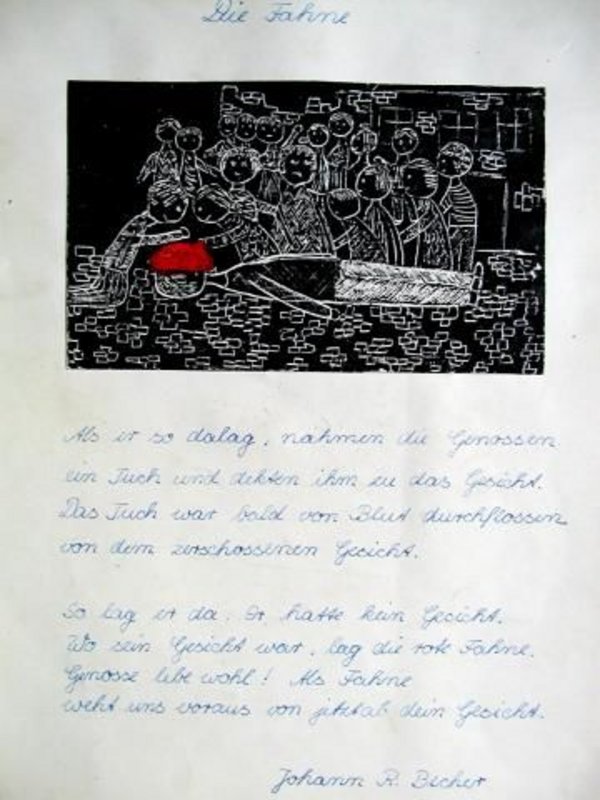 Die Fahne
Als er so dalag, nahmen die Genossen
ein Tuch und dekten ihm zu das Gesicht.
Das Tuch war bald von Blut durchflossen
von dem zerschossenen Gesicht.
So lag er da. Er hatte kein Gesicht.
Wo sein Gesicht war, lag die rote Fahne.
Genosse lebe wohl! Als Fahne
weht uns voraus von jetzt ab dein Gesicht.
Johann R. Becher